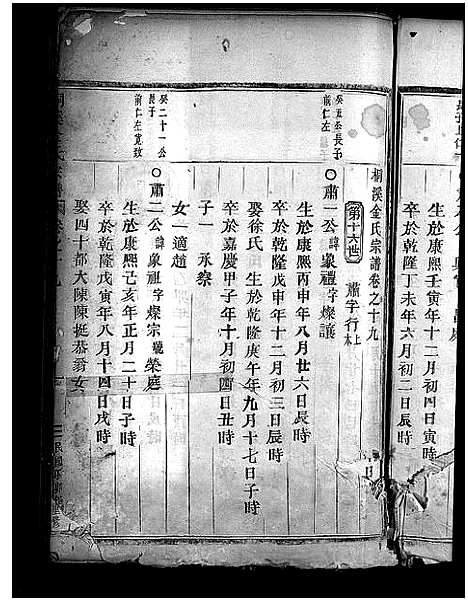 生於康熙壬寅年十二月初四日寅時
卒於乾隆丁未年六月初二日辰時
桐溪金氏宗譜卷之十九
第十六世
肅字行上
癸五公長子
前仁左
○肅一公諱象禮字燦議
生於康熙丙申年八月廿六日長時
卒於乾隆戊申年十二月初三日辰時
娶徐氏 生於乾隆庚午年九月十七日子時
卒於嘉慶甲子年十月初四日丑時
子一 永察
女一適趙
癸二十一公
長子
前仁左寬數
○肅二公諱象祖字燦宗號榮庭
生於康熙己亥年正月二十日子時
卒於乾隆戊寅年八月十四日戌時
娶四十都大陳陳挺恭翁女